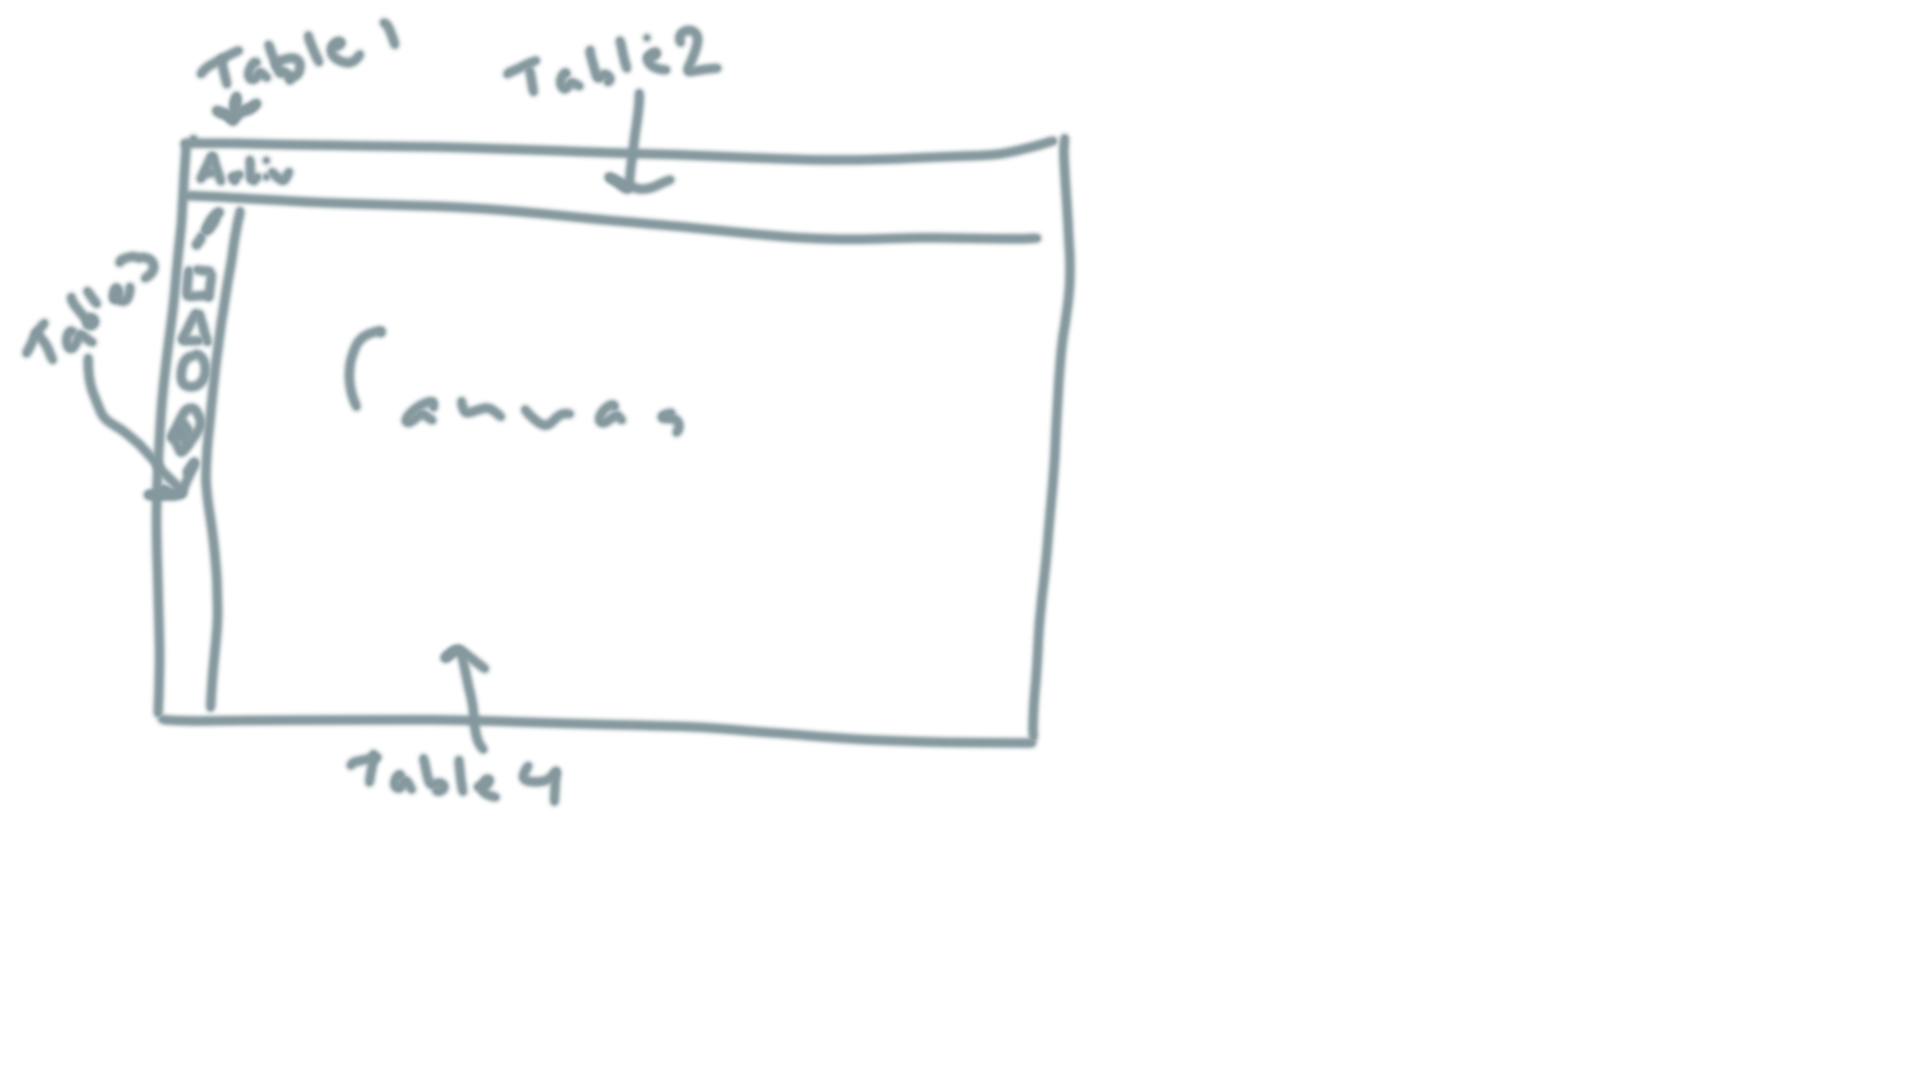 Table 1
Table 2
Table 3
Canvas
Table 4